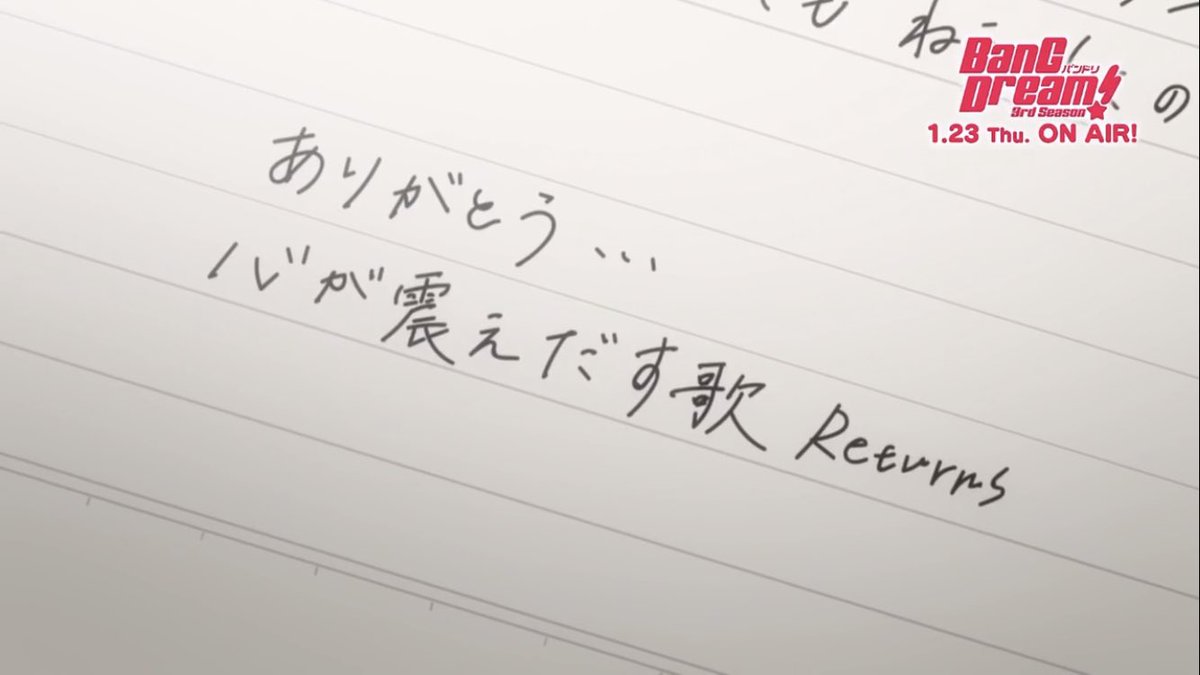 BanG
バンドリ
Dream!
3rd Season
1.23 Thu. ON AIR!
ありがとう…
心が震えだす歌 Returns